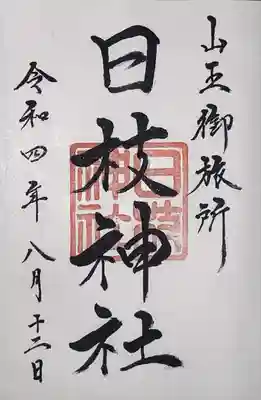 山王御旅所
日枝神社
令和四年八月十二日